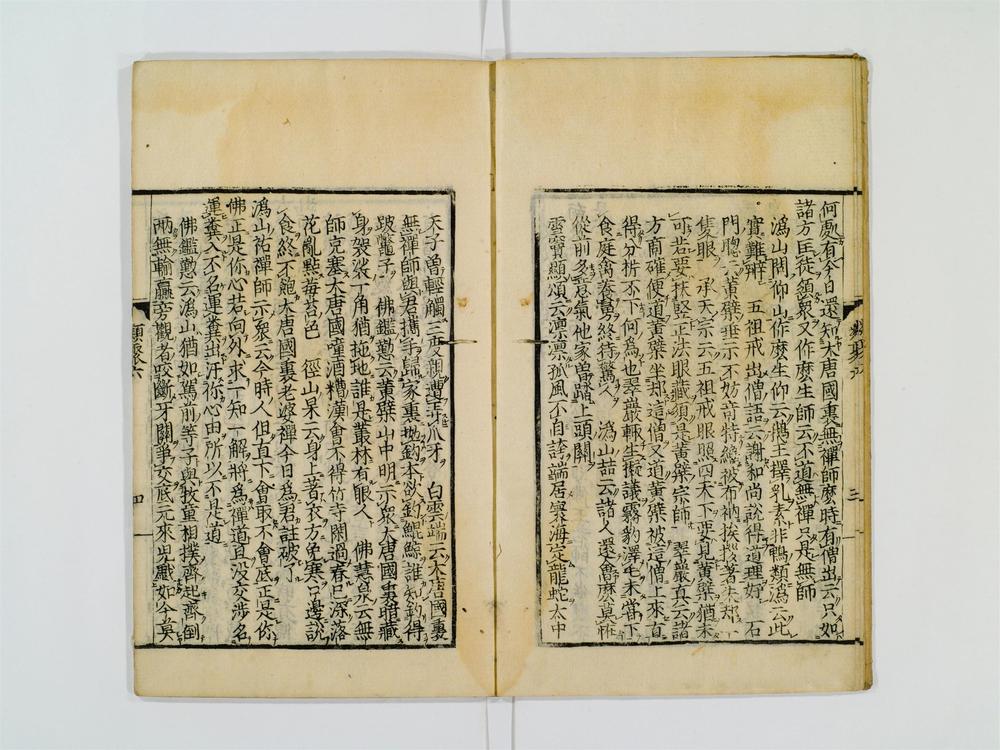 何處有今日還知大唐國裏無禪師麼時有僧出云只如
諸方匡徒領衆又作麼生師云不道無禪只是無師
溈山問仰山作麼生仰云鵝王擇乳素非鴨類溈云此
實難辯 五祖戒出僧語云謝和尚說得道理好 石
門聰云黃檗垂示不妨奇特纔被布衲挨拶著失却一
隻眼 承天宗云五祖戒眼照四天下要見黃檗猶未
可若要扶竪正法眼藏須是黃檗宗師 翠巖真云諸
方商確便道黃檗坐却這僧又道黃檗被這僧上來直
得分析不下何為也翠巖輒生擬議霧豹澤毛未嘗下
食庭禽養勇終待驚人 溈山喆云諸人還會麼莫怪
從前多意氣他家曽踏上頭關
雪竇顯頌云凛凛孤風不自誇端居寰海㝎龍蛇太中
三
天子曽輕觸三度親遭弄爪牙 白雲端云大唐國裏
無禪師與君攜手歸家裏地釣本欲釣鯤鯨誰知釣得
跛鼈子 佛鑑懃云黃檗山中明示衆大唐國裏暗藏
身袈裟一角猶拖地誰是叢林有眼人 佛慧泉云無
師充塞大唐國噇酒糟漢會不得竹寺閑過春已深落
花亂點莓苔色 徑山杲云身上著衣方免寒口邊說
食終不飽大唐國裏老婆禪今日爲君註破了
溈山祐禪師示衆云今時人但直下會取不會底正是你
佛正是你心若向外求一知一解將爲禪道且沒交涉名
運糞入不名運糞出汙你心田所以不是道
佛鑑懃云溈山猶如駕前等子與敎重相撲齊起齊倒
兩無輸贏旁觀者咬斷牙關爭交底元來是戲如今莫
四